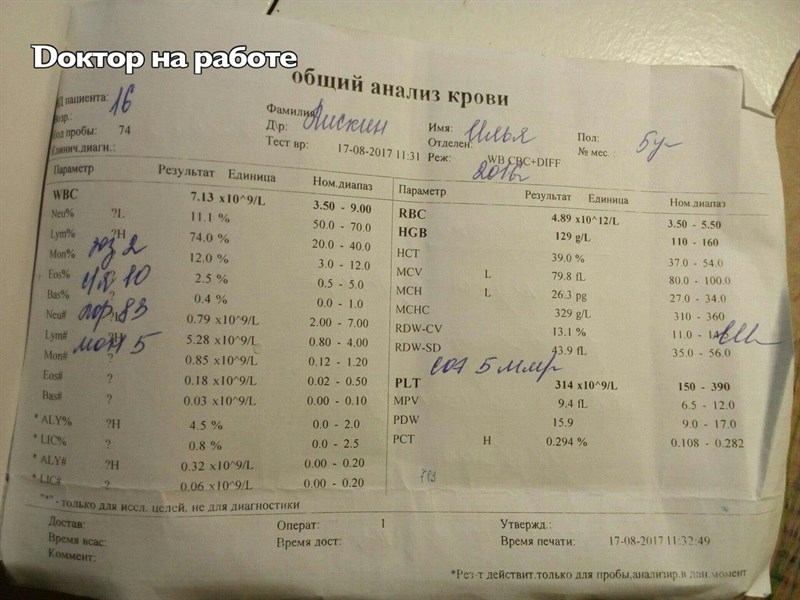 Dоктор на работе
общий анализ крови
ID пациента: 16
Фамилия: Лискин
Имя: Илья
Пол:
Возр.:
Д\р:
Отделен.
№ мес. :
Код пробы: 74
Тест вр: 17-08-2017 11:31
Реж: WB CBC+DIFF
Клинич.диагн.:
2016г
Параметр Результат Единица Ном.диапаз
WBC 7.13 x10^9/L 3.50 - 9.00
Neu% ?L 11.1 % 50.0 - 70.0
Lym% ?H 74.0 % 20.0 - 40.0
Mon% 12.0 % 3.0 - 12.0
Eos% 2.5 % 0.5 - 5.0
Bas% ? 0.4 % 0.0 - 1.0
Neu# 0.79 x10^9/L 2.00 - 7.00
Lym# ?H 5.28 x10^9/L 0.80 - 4.00
Mon# ? 0.85 x10^9/L 0.12 - 1.20
Eos# ? 0.18 x10^9/L 0.02 - 0.50
Bas# ? 0.03 x10^9/L 0.00 - 0.10
* ALY% ?H 4.5 % 0.0 - 2.0
* LIC% ? 0.8 % 0.0 - 2.5
* ALY# ?H 0.32 x10^9/L 0.00 - 0.20
* LIC# ? 0.06 x10^9/L 0.00 - 0.20
юз 2
с/я 10
лф 83
мон 5
Параметр Результат Единица Ном.диапаз
RBC 4.89 x10^12/L 3.50 - 5.50
HGB 129 g/L 110 - 160
HCT 39.0 % 37.0 - 54.0
MCV L 79.8 fL 80.0 - 100.0
MCH L 26.3 pg 27.0 - 34.0
MCHC 329 g/L 310 - 360
RDW-CV 13.1 % 11.0 -
RDW-SD 43.9 fL 35.0 - 56.0
соэ 5 ммр
PLT 314 x10^9/L 150 - 390
MPV 9.4 fL 6.5 - 12.0
PDW 15.9 9.0 - 17.0
PCT H 0.294 % 0.108 - 0.282
"*" - только для иссл. целей, не для диагностики
Достав: Операт: 1 Утвержд.:
Время всас: Время дост: Время печати: 17-08-2017 11:32:49
Коммент:
*Рез-т действит.только для пробы,анализир.в дан.момент